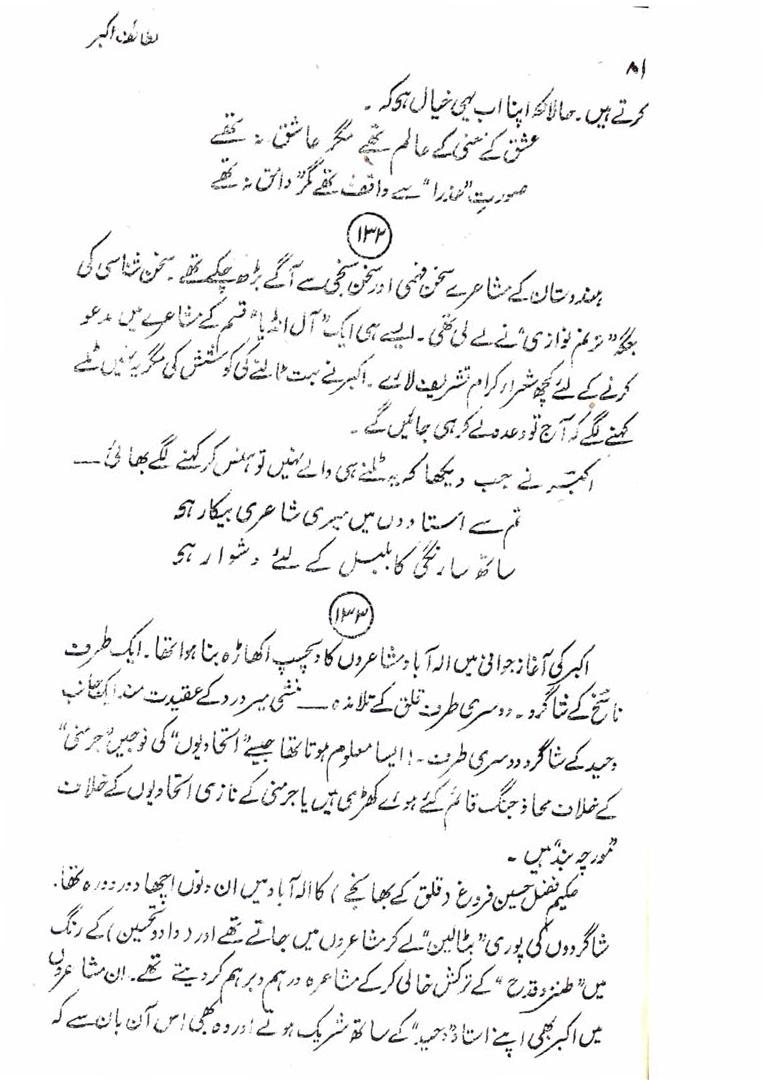 لطائف اکبر
۸۱
کرتے ہیں۔ حالانکہ اپنا اب یہی خیال ہی کہ۔
عشق کے معنی کے عالم تھے مگر عاشق نہ تھے
صورتِ "عذرا" سے واقف تھے مگر وامق نہ تھے
۱۳۲
ہندوستان کے مشاعرے سخن فہمی اور سخن سنجی سے آگے بڑھ چکے تھے۔ سخن شناسی کی
جگہ "ترنم نوازی" نے لے لی تھی۔ ایسے ہی ایک "آل انڈیا" قسم کے مشاعرے میں مدعو
کرنے کے لئے کچھ شعراء کرام تشریف لائے۔ اکبر نے بہت ٹالنے کی کوشش کی مگر یہ نہیں ٹلے
کہنے لگے کہ آج تو وعدہ لے کر ہی جائیں گے۔
اکبر نے جب دیکھا کہ یہ ٹلنے ہی والے نہیں تو ہنس کر کہنے لگے بھائی —
تم سے استادوں میں میری شاعری بیکار ہی
ساتھ سارنگی کا بلبل کے لئے دشوار ہی
۱۳۳
اکبر کی آغاز جوانی میں الہ آباد مشاعروں کا دلچسپ اکھاڑہ بنا ہوا تھا۔ ایک طرف
ناسخ کے شاگرد۔ دوسری طرف قلق کے تلامذہ — منشی میر درد کے عقیدت مند ایک جانب
وحید کے شاگرد دوسری طرف۔! ایسا معلوم ہوتا تھا جیسے "اتحادیوں" کی فوجیں "جرمنی"
کے خلاف محاذ جنگ قائم کئے ہوئے کھڑی ہیں یا جرمنی کے نازی اتحادیوں کے خلاف
"مورچہ بند" ہیں۔
حکیم فضل حسین فروغ (قلق کے بھانجے) کا الہ آباد میں ان دنوں اچھا دور دورہ تھا۔
شاگردوں کی پوری "بٹالین" لے کر مشاعروں میں جاتے تھے اور (داد و تحسین) کے رنگ
میں "طنز و قدح" کے ترکش خالی کر کے مشاعرہ درہم و برہم کر دیتے تھے۔ ان مشاعروں
میں اکبر بھی اپنے استاد "وحید" کے ساتھ شریک ہوتے اور وہ بھی اس آن بان سے کہ